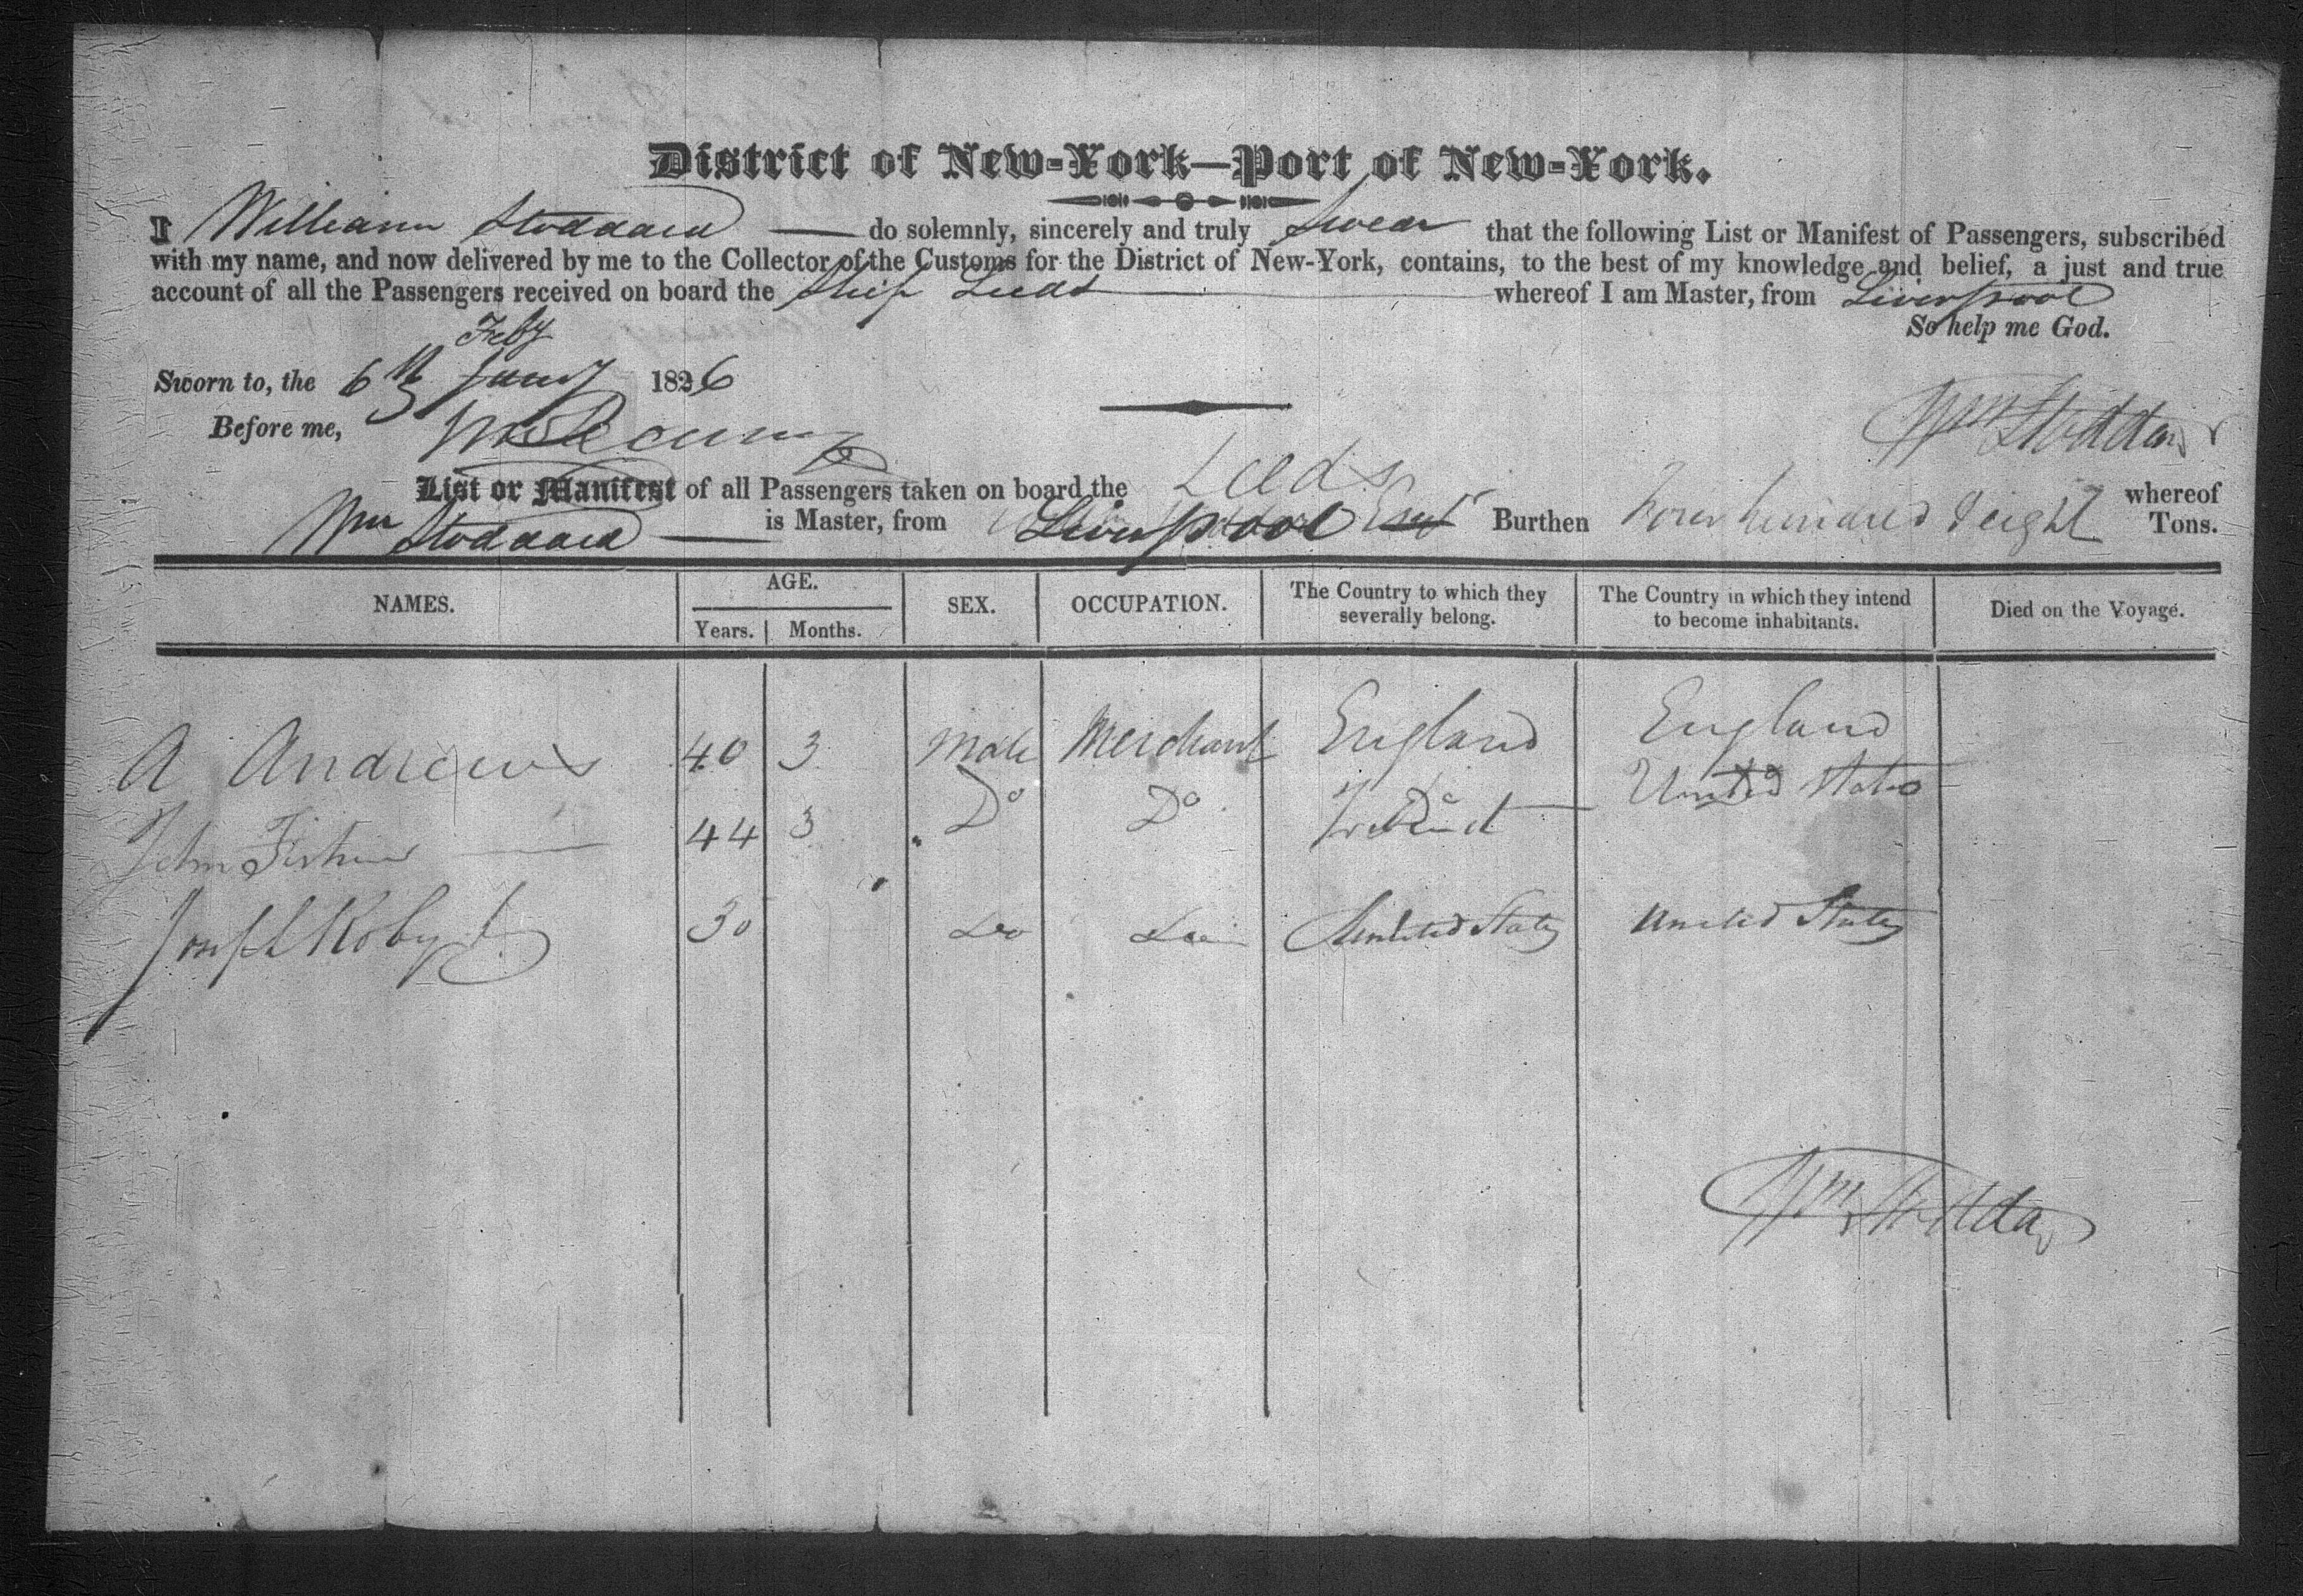 District of New-York—Port of New-York.
I William Stoddard do solemnly, sincerely and truly Swear that the following List or Manifest of Passengers, subscribed
with my name, and now delivered by me to the Collector of the Customs for the District of New-York, contains, to the best of my knowledge and belief, a just and true
account of all the Passengers received on board the Ship Leeds whereof I am Master, from Liverpool
So help me God.
Feby
Sworn to, the 6th Jany 1826
Before me,
Wm Stoddard
List or Manifest of all Passengers taken on board the Leeds whereof
Wm Stoddard is Master, from Liverpool Burthen Four hundred & eight Tons.
NAMES. AGE. Years. Months. SEX. OCCUPATION. The Country to which they severally belong. The Country in which they intend to become inhabitants. Died on the Voyage.
A Andrews 40 3 Male Merchant England England
John 44 3 Do Do United States
Joseph 30 Do Do United States United States
Wm Stoddard